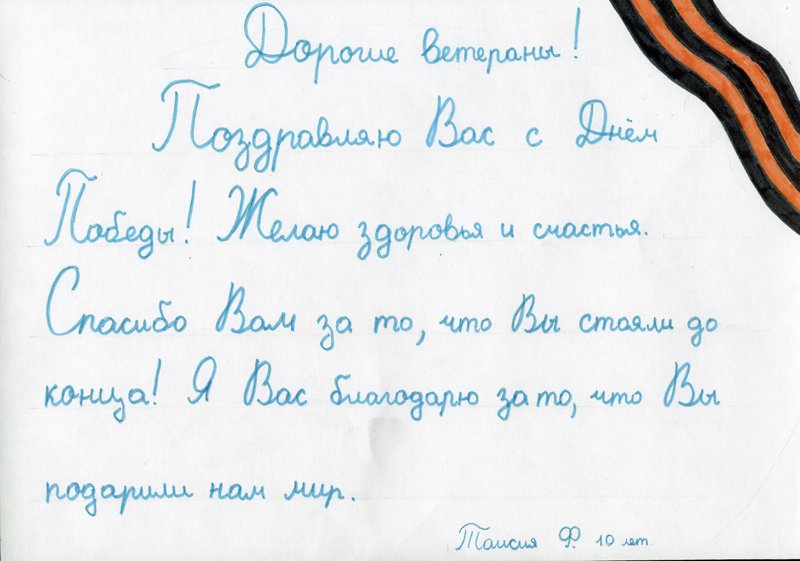 Дорогие ветераны!
Поздравляю Вас с Днём
Победы! Желаю здоровья и счастья.
Спасибо Вам за то, что Вы стояли до
конца! Я Вас благодарю за то, что Вы
подарили нам мир.
Таисия Ф. 10 лет.